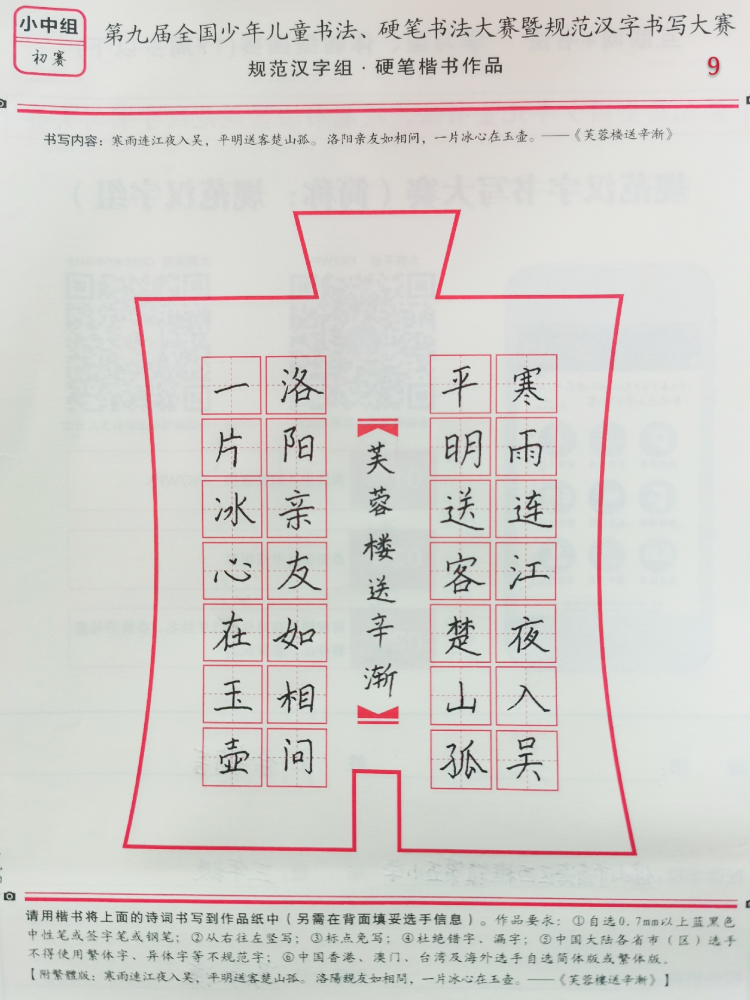 小中组
初赛
第九届全国少年儿童书法、硬笔书法大赛暨规范汉字书写大赛
规范汉字组·硬笔楷书作品
9
书写内容：寒雨连江夜入吴，平明送客楚山孤。洛阳亲友如相问，一片冰心在玉壶。——《芙蓉楼送辛渐》
寒雨连江夜入吴
平明送客楚山孤
芙蓉楼送辛渐
洛阳亲友如相问
一片冰心在玉壶
请用楷书将上面的诗词书写到作品纸中（另需在背面填妥选手信息）。作品要求：①自选0.7mm以上蓝黑色
中性笔或签字笔或钢笔；②从右往左竖写；③标点免写；④杜绝错字、漏字；⑤中国大陆各省市（区）选手
不得使用繁体字、异体字等不规范字；⑥中国香港、澳门、台湾及海外选手自选简体版或繁体版。
【附繁體版：寒雨連江夜入吳，平明送客楚山孤。洛陽親友如相問，一片冰心在玉壺。——《芙蓉樓送辛漸》】